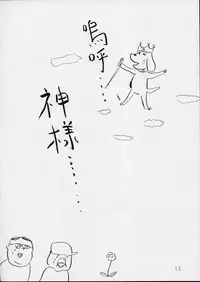 嗚呼……
神様………